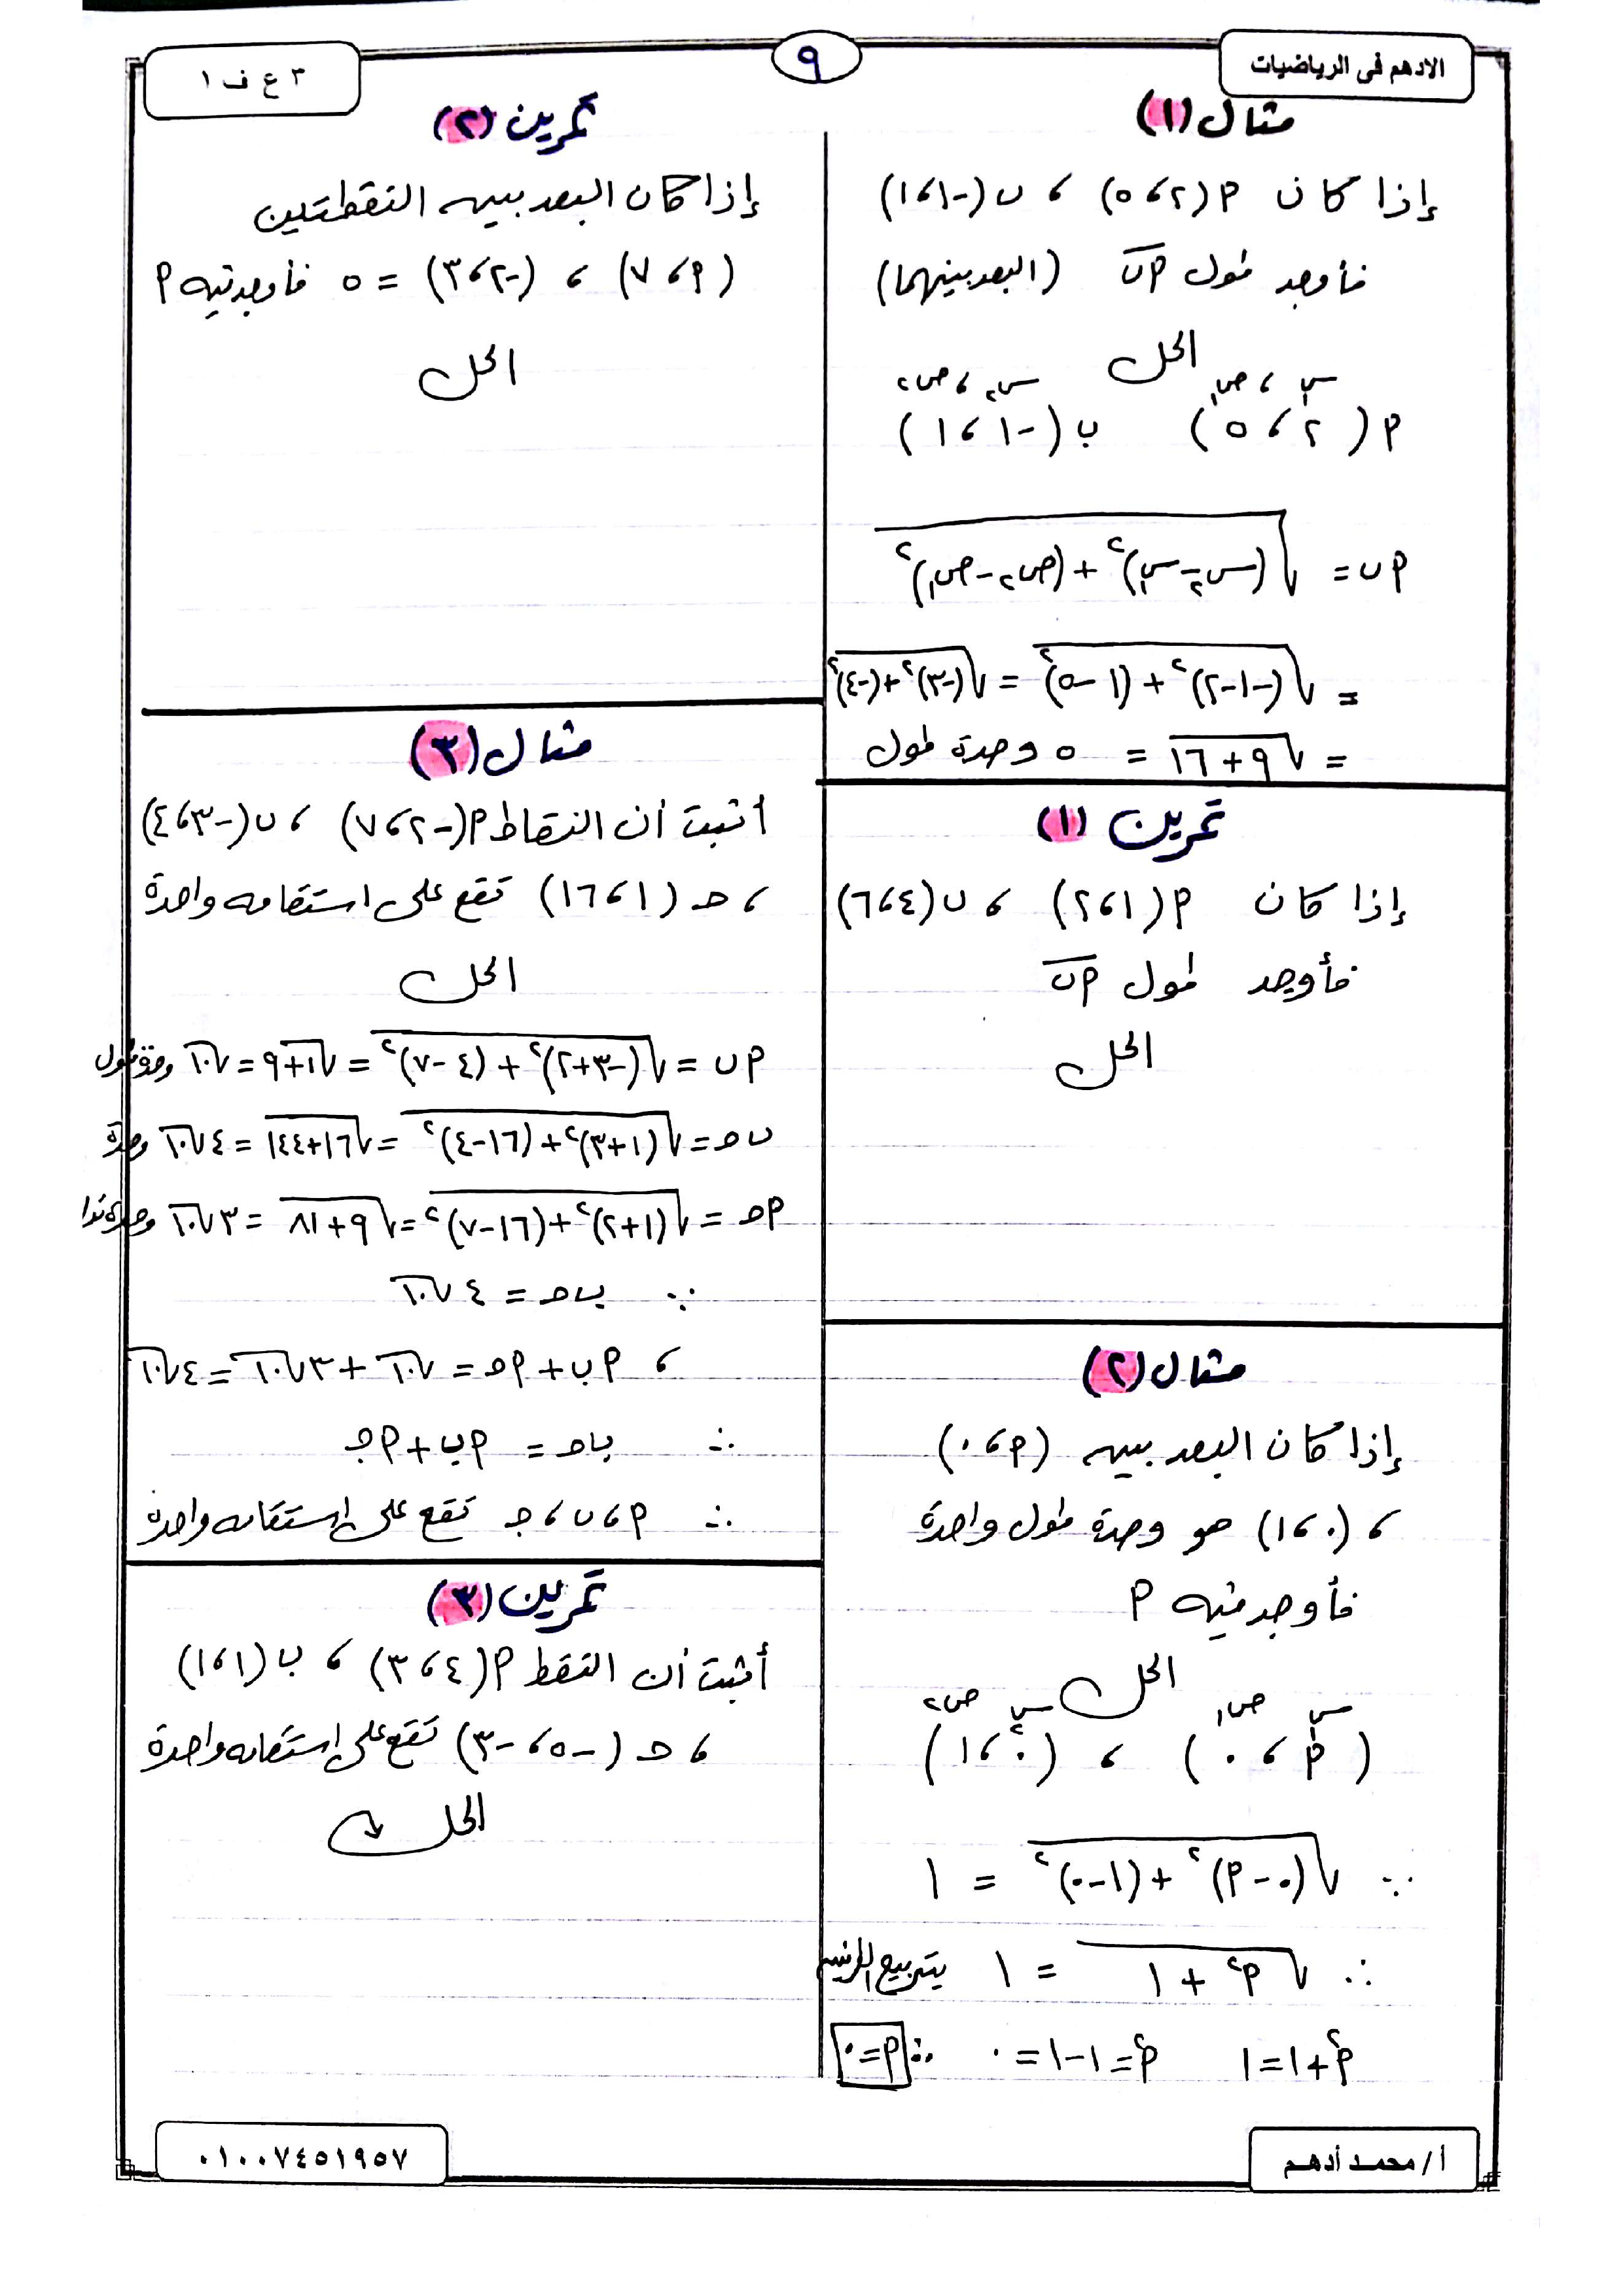 الادهم فى الرياضيات
٩
٣ ع ف ١
مثال (١)
إذا كان م (٢ ، ٥) ، ب (-١ ، ١)
فأوجد طول م ب (البعد بينهما)
الحل
س١ ، ص١ س٢ ، ص٢
م (٢ ، ٥) ب (-١ ، ١)
م ب = √((س٢ - س١)² + (ص٢ - ص١)²)
= √((-١-٢)² + (١-٥)²) = √((-٣)² + (-٤)²)
= √(٩+١٦) = ٥ وحدة طول
تمرين (١)
إذا كان م (١ ، ٢) ، ب (٤ ، ٦)
فأوجد طول م ب
الحل
مثال (٢)
إذا كان البعد بين (م ، ٠)
، (٠ ، ١) هو وحدة طول واحدة
فأوجد قيمة م
الحل
س١ ص١ س٢ ص٢
(م ، ٠) ، (٠ ، ١)
∵ √((٠ - م)² + (١-٠)²) = ١
∴ √(م² + ١) = ١ بتربيع الطرفين
م² + ١ = ١ م² = ١-١ = ٠ ∴ م = ٠
تمرين (٢)
إذا كان البعد بين النقطتين
(م ، ٧) ، (-٢ ، ٣) = ٥ فأوجد قيمة م
الحل
مثال (٣)
أثبت أن النقاط م (-٢ ، ٧) ، ب (-٣ ، ٤)
، حـ (١ ، ١٦) تقع على استقامة واحدة
الحل
م ب = √((-٣+٢)² + (٤-٧)²) = √(١+٩) = √١٠ وحدة طول
ب حـ = √((١+٣)² + (١٦-٤)²) = √(١٦+١٤٤) = ٤√١٠ وحدة
م حـ = √((١+٢)² + (١٦-٧)²) = √(٩+٨١) = ٣√١٠ وحدة
∵ ب حـ = ٤√١٠
، م ب + م حـ = √١٠ + ٣√١٠ = ٤√١٠
∴ ب حـ = م ب + م جـ
∴ م ، ب ، جـ تقع على استقامة واحدة
تمرين (٣)
أثبت أن النقط م (٤ ، ٣) ، ب (١ ، ١)
، حـ (-٥ ، -٣) تقع على استقامة واحدة
الحل
أ / محمد أدهم
٠١٠٠٧٤٥١٩٥٧